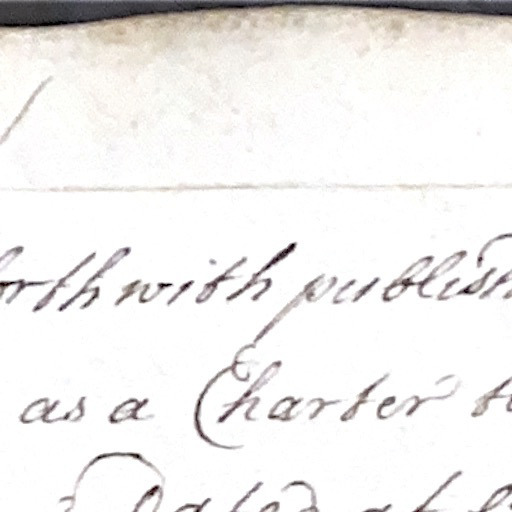 forthwith publish
as a Charter to
Dated at